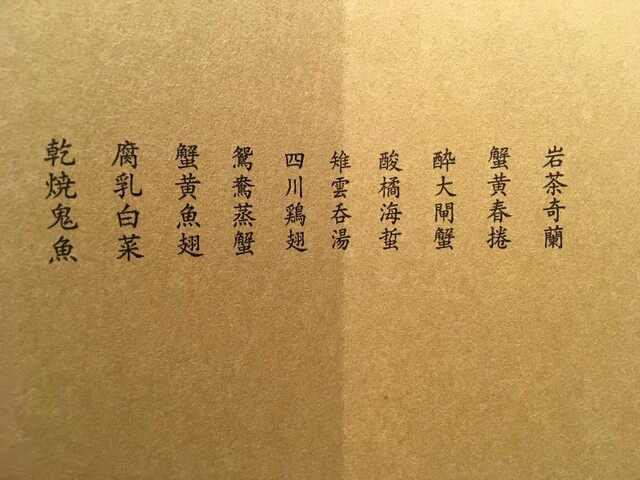 岩茶奇蘭
蟹黄春捲
酔大閘蟹
酸橘海蜇
雉雲呑湯
四川鶏翅
鴛鴦蒸蟹
蟹黄魚翅
腐乳白菜
乾焼鬼魚